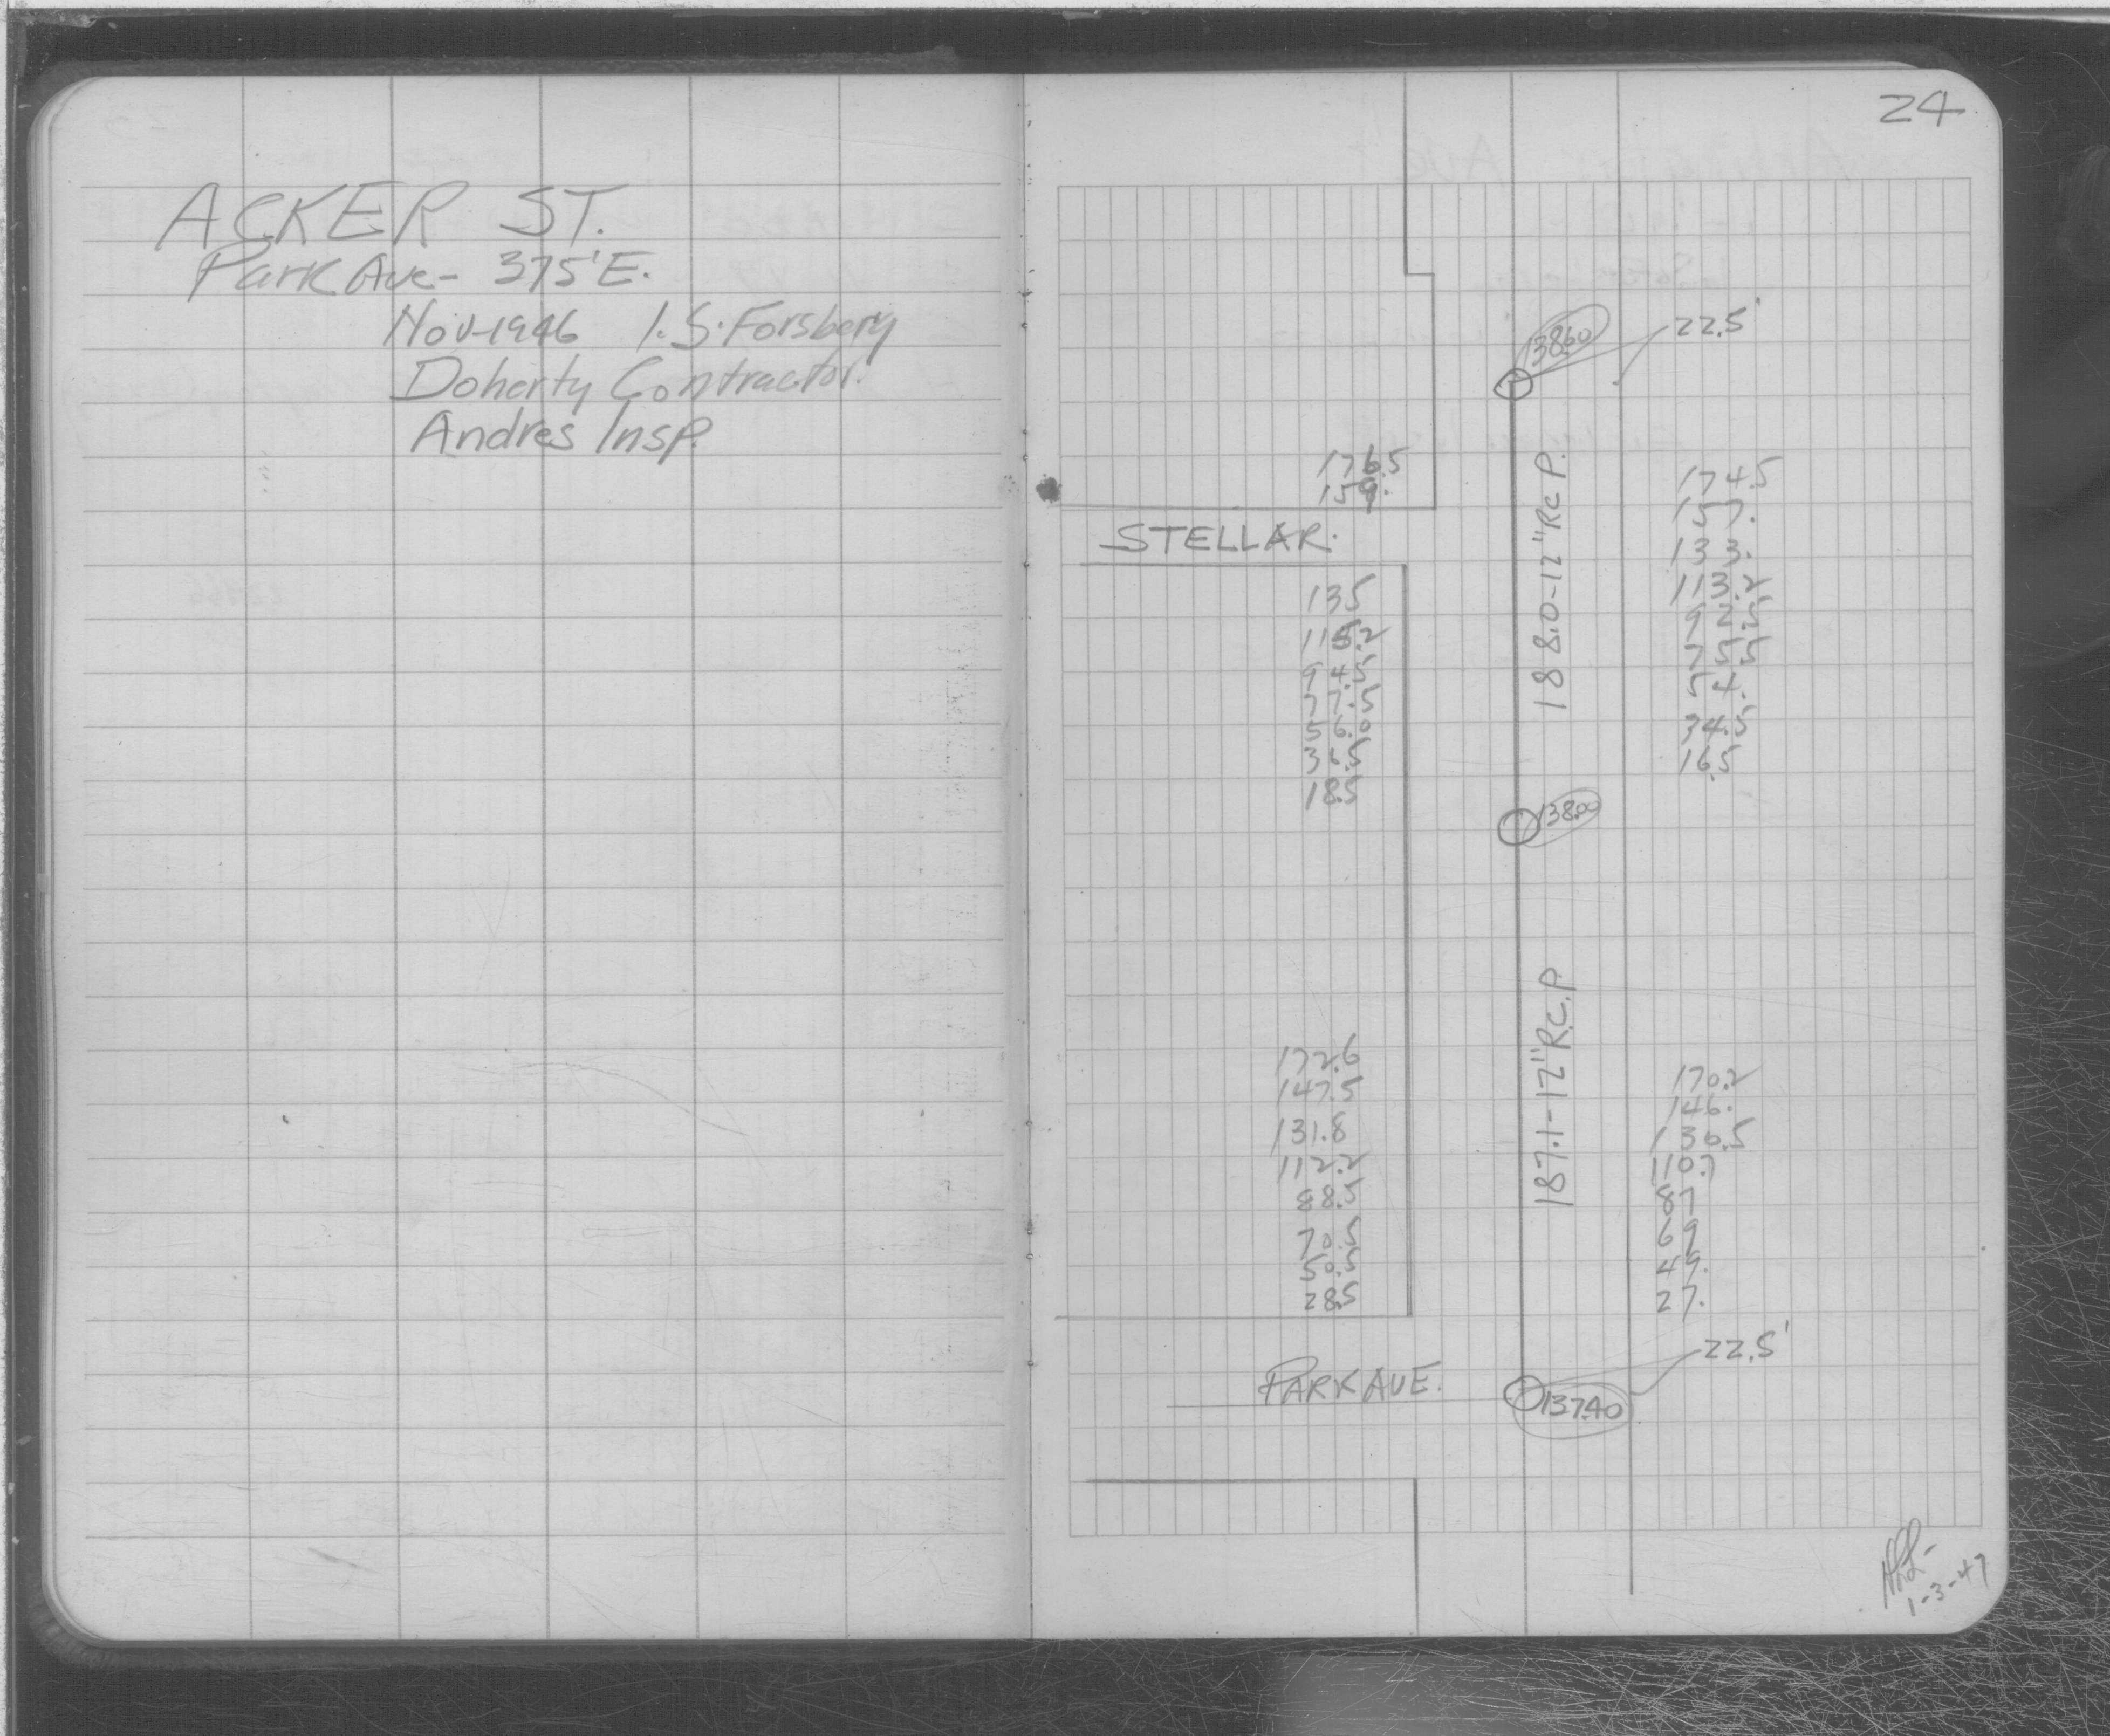 ACKER ST.
Park Ave- 375'E.
Nov-1946 I.S. Forsberg
Doherty Contractor.
Andres Insp.
24
138.60
22.5'
176.5
159.
STELLAR.
135
115.2
94.5
77.5
56.0
36.5
18.5
188.0-12"RCP.
174.5
157.
133.
113.2
92.5
75.5
54.
34.5
16.5
138.00
172.6
147.5
131.8
112.2
88.5
70.5
50.5
28.5
187.1-12"R.C.P
170.2
146.
130.5
110.7
87
69
49.
27.
22.5'
PARK AVE.
137.40
1-3-47